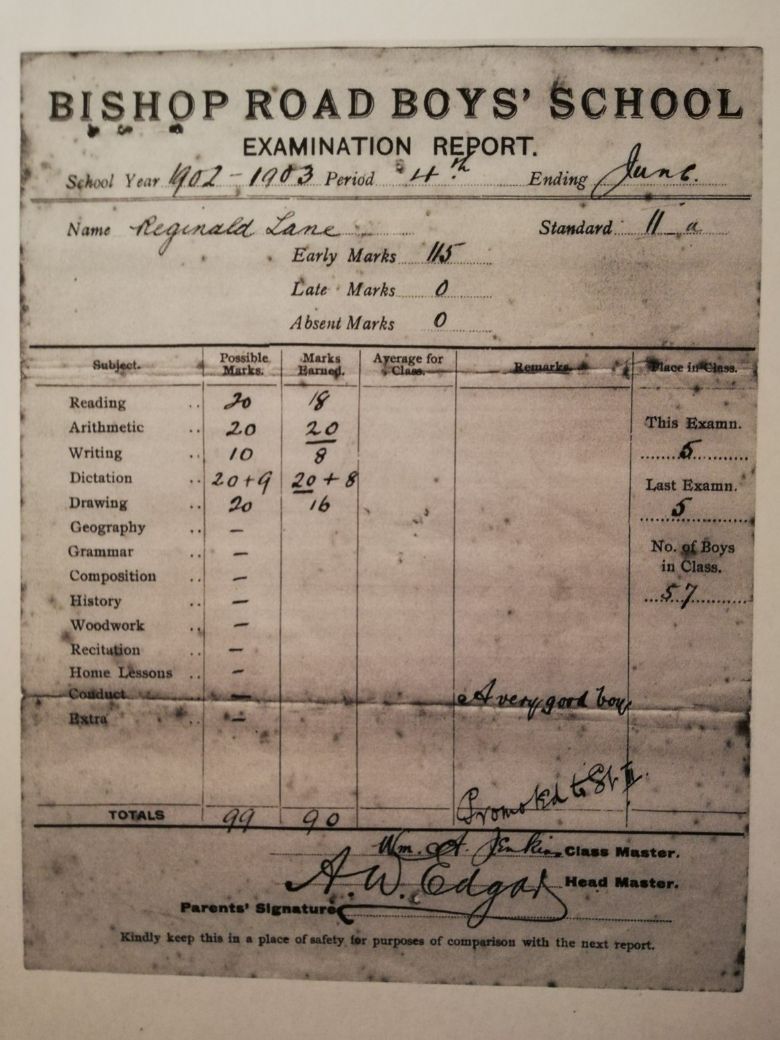 BISHOP ROAD BOYS' SCHOOL
EXAMINATION REPORT.
School Year 1902-1903 Period 4th Ending June.
Name Reginald Lane Standard II a
Early Marks 115
Late Marks 0
Absent Marks 0
Subject. Possible Marks. Marks Earned. Average for Class. Remarks. Place in Class.
Reading .. 20 18
Arithmetic .. 20 20 This Examn.
Writing .. 10 8 5
Dictation .. 20+9 20+8 Last Examn.
Drawing .. 20 16 5
Geography .. —
Grammar .. — No. of Boys
Composition .. — in Class.
History .. — 57
Woodwork .. —
Recitation .. —
Home Lessons .. —
Conduct .. — A very good boy
Extra .. —
Promoted to St III.
TOTALS 99 90
Wm. A. Jenkins Class Master.
A. W. Edgar Head Master.
Parents' Signature
Kindly keep this in a place of safety for purposes of comparison with the next report.